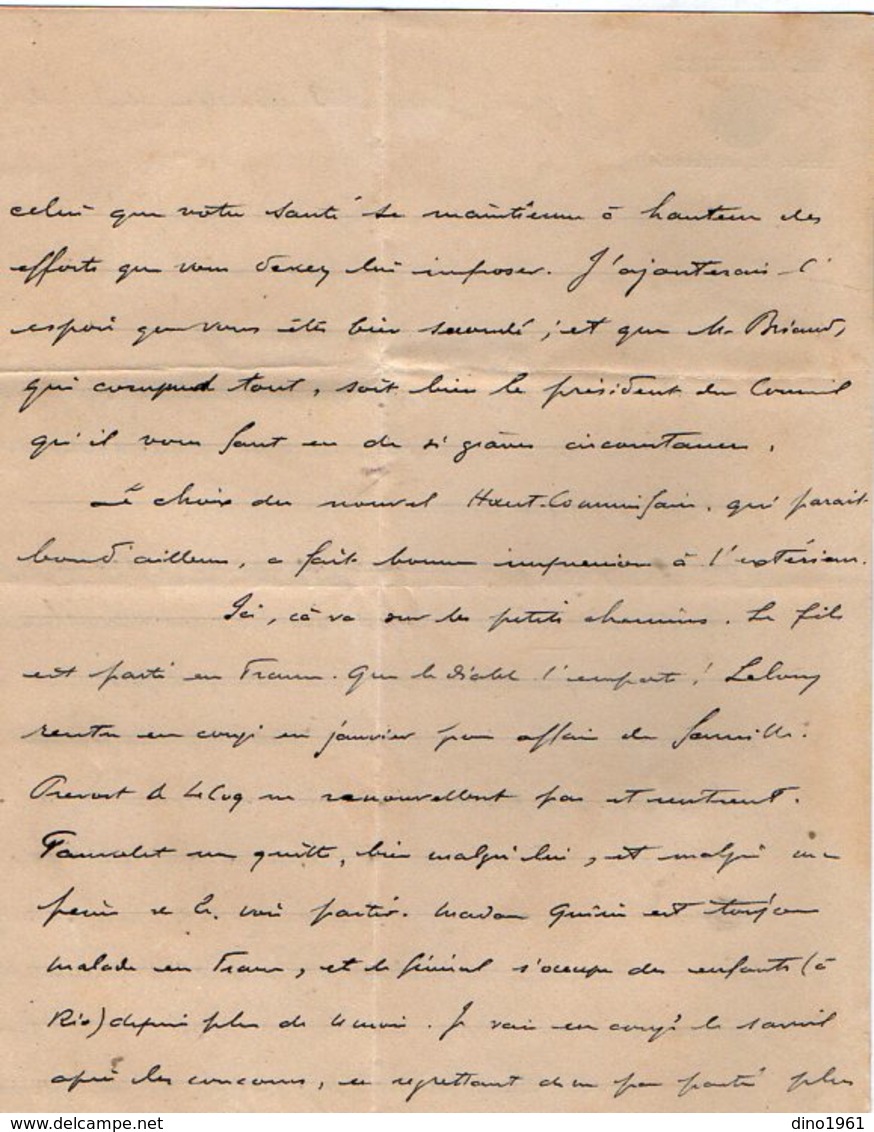 celui que votre santé se maintienne à hauteur des
efforts que vous devez lui imposer. J'ajouterais l'
espoir que vous êtes bien secondé ; et que M. Briand,
qui comprend tout, soit bien le président du Conseil
qu'il vous faut en de si graves circonstances.
Le choix du nouvel Haut-Commissaire, qui parait
bon d'ailleurs, a fait bonne impression à l'extérieur.
Ici, cà va sur les petits chemins. Le fils
est parti en France. Que le diable l'emporte ! Lelong
rentre en congé en janvier pour affaire de famille.
Prevost & LeCoq ne renouvellent pas et rentrent.
me quitte, bien malgré lui, et malgré ma
peine de le voir partir. Madame Guérin est toujours
malade en France, et le Général s'occupe des enfants (à
Rio) depuis plus de 4 mois. Je vais en congé le
après les concours, en regrettant de ne pas partir plus
dino1961